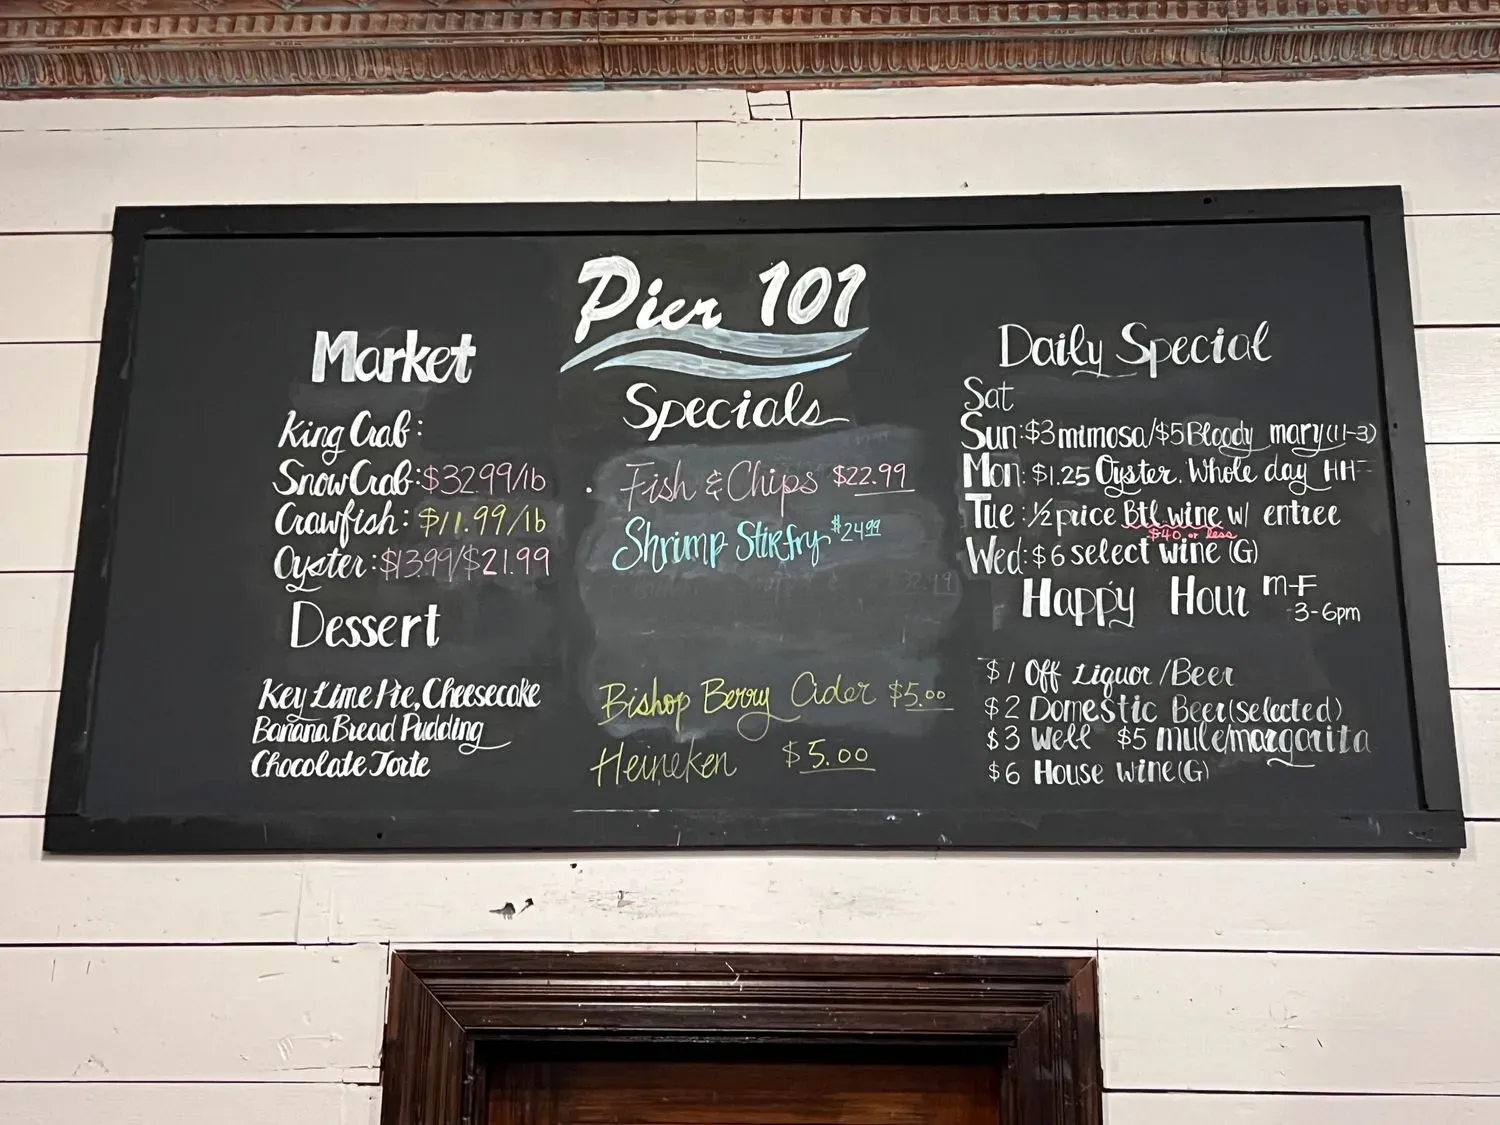 Pier 101
Market
King Crab:
Snow Crab: $32.99/lb
Crawfish: $11.99/lb
Oyster: $13.99/$21.99
Dessert
Key Lime Pie, Cheesecake
Banana Bread Pudding
Chocolate Torte
Specials
Fish & Chips $22.99
Shrimp Stirfry $24.99
Bishop Berry Cider $5.00
Heineken $5.00
Daily Special
Sat
Sun: $3 mimosa/$5 Bloody mary (11-3)
Mon: $1.25 Oyster. Whole day HH
Tue: ½ price Btl wine w/ entree
$40 or less
Wed: $6 select wine (G)
Happy Hour M-F
3-6pm
$1 Off Liquor/Beer
$2 Domestic Beer (selected)
$3 Well $5 mule/margarita
$6 House Wine (G)